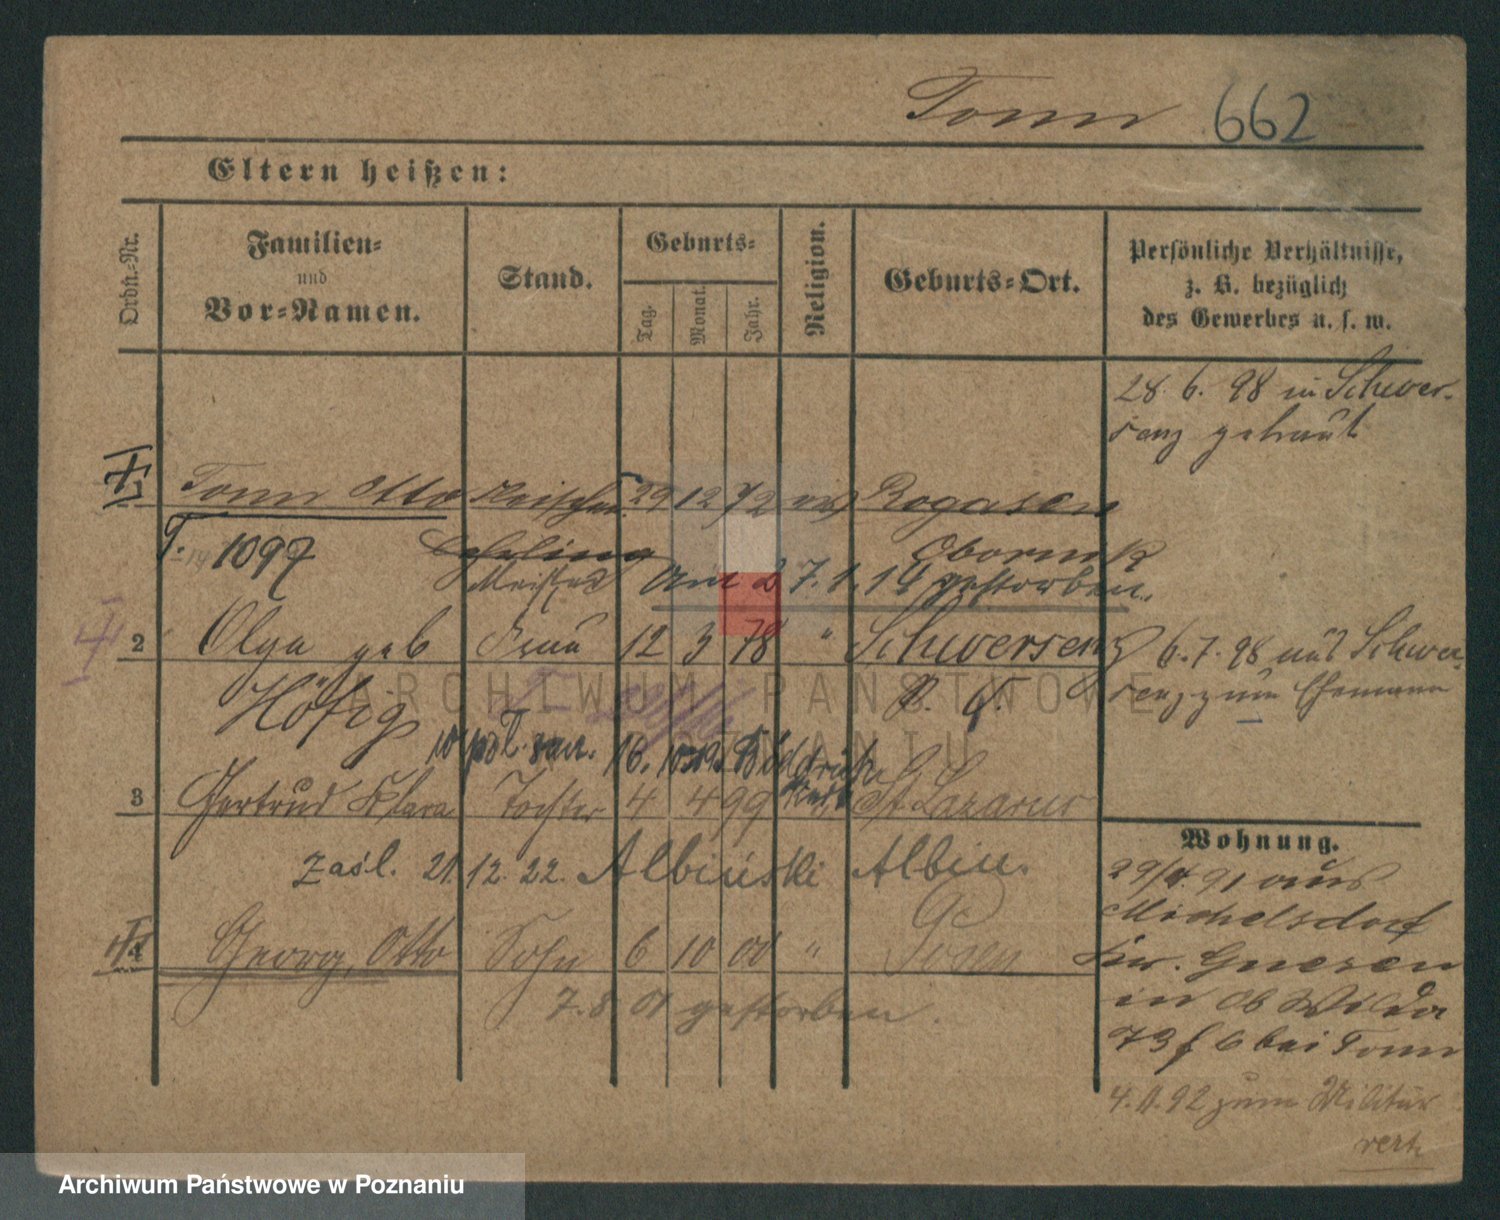 Tonn 662
Eltern heißen:
Ordn.-Nr.
Familien-
und
Vor-Namen.
Stand.
Geburts-
Tag.
Monat.
Jahr.
Religion.
Geburts-Ort.
Persönliche Verhältnisse,
z. B. bezüglich
des Gewerbes u. s. w.
28. 6. 98 in Schwer-
senz getraut
Tonn Otto Fleischer 29 12 72 Rogasen
T. 1097 Lehrling Obornik
Meister am 27. 1. 14 gestorben.
2 Olga geb Frau 12 3 78 " Schwersenz
Höfig
6. 7. 98 aus Schwer-
senz zum Ehemann
3 Gertrud Klara Tochter 4 4 99 St Lazarus
zaśl. 21. 12. 22. Albiński Albin.
4 Georg, Otto Sohn 6 10 00 " Posen
7. 8. 01 gestorben.
Wohnung.
29/4. 91 aus
Michelsdorf
Kr. Gnesen
in Ob Wilda
73 f 6 bei Tonn
4. 11. 92 zum Militär
ARCHIWUM PAŃSTWOWE
W POZNANIU
Archiwum Państwowe w Poznaniu